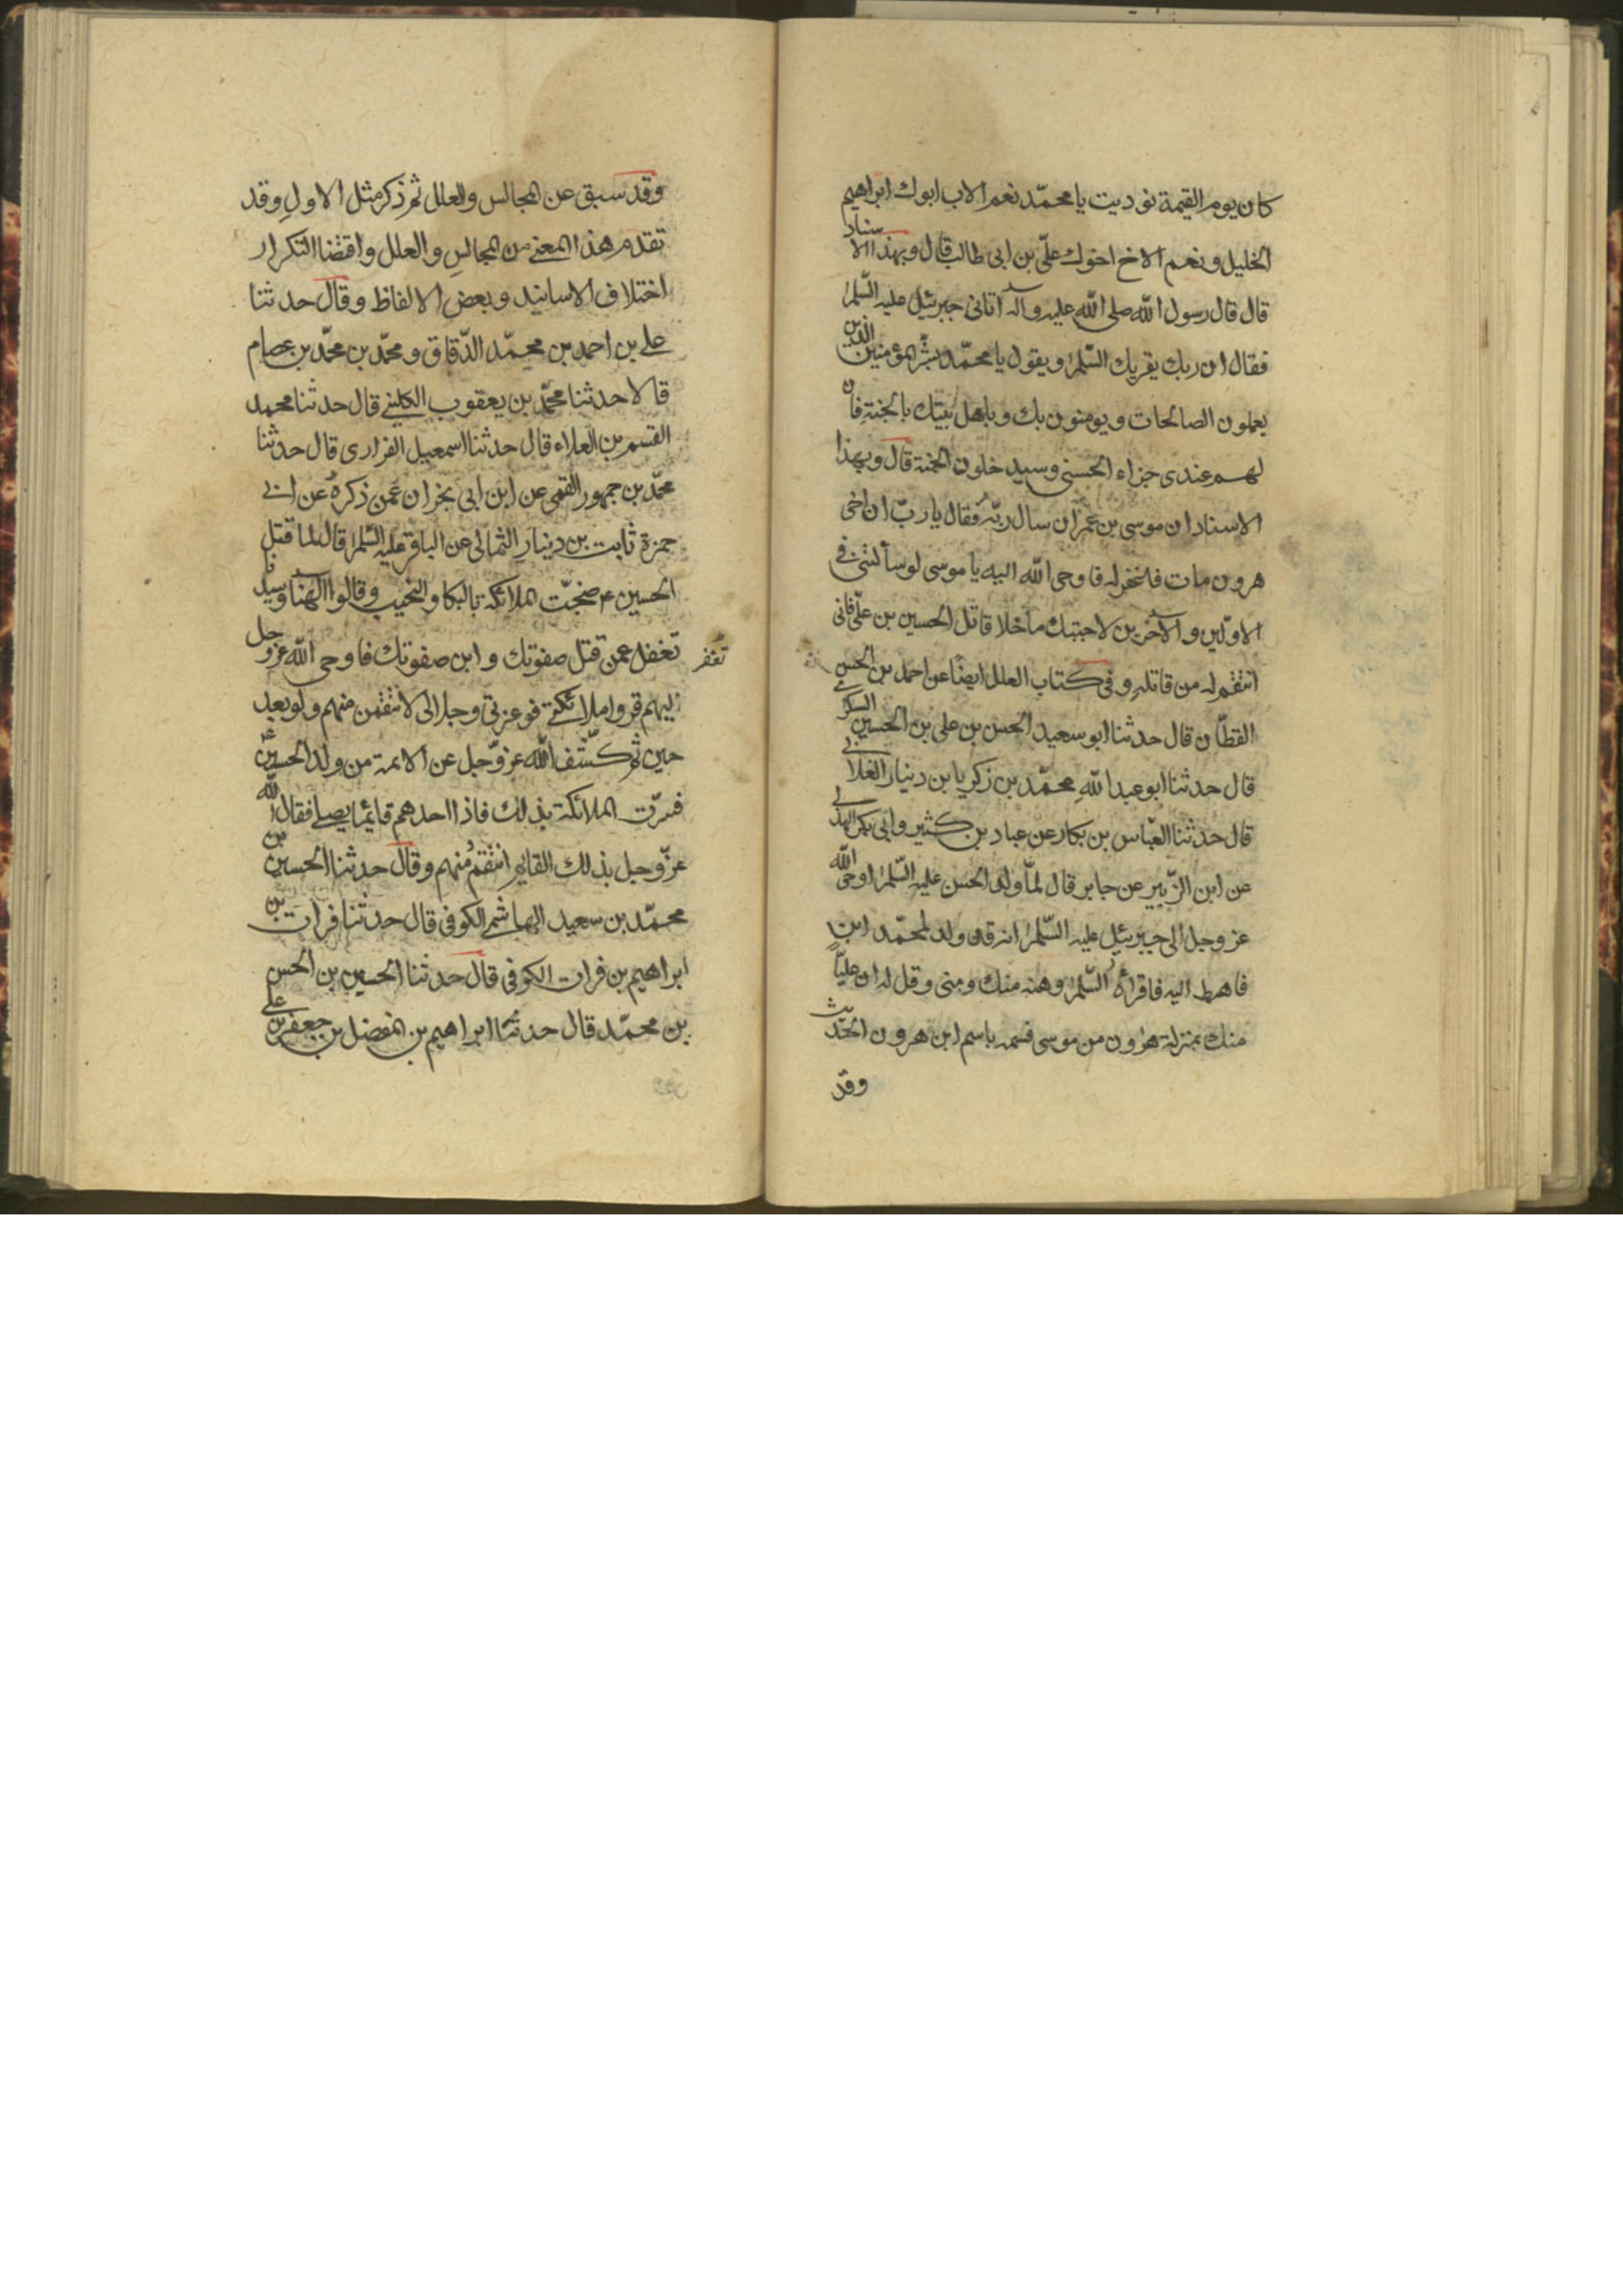 كان يوم القيمة نوديت يا محمّد نعم الاب ابوك ابراهيم
الخليل ونعم الاخ اخوك علىّ بن ابى طالب قال وبهذا الاسناد
قال قال رسول الله صلى الله عليه وآله اتانى جبرئيل عليه السّلم
فقال ان ربك يقريك السّلم ويقول يا محمّد بشّر المؤمنين الذين
يعملون الصالحات ويومنون بك وباهل بيتك بالجنة فان
لهم عندى جزاء الحسنى وسيدخلون الجنة قال وبهذا
الاسناد ان موسى بن عمران سال ربّه فقال يا ربّ ان اخى
هرون مات فاغفر له فاوحى الله اليه يا موسى لو سألتنى فى
الاوّلين والآخرين لاجبتك ما خلا قاتل الحسين بن علىّ فانى
انتقم له من قاتله وفى كتاب العلل ايضًا عن احمد بن الحسن
القطّان قال حدثنا ابو سعيد الحسن بن على بن الحسين السكرى
قال حدثنا ابو عبد الله محمّد بن زكريا بن دينار الغلابى
قال حدثنا العبّاس بن بكار عن عباد بن كثير وابى بكر الهذلى
عن ابن الزّبير عن جابر قال لمّا ولد الحسن عليه السّلم اوحى الله
عز وجل الى جبرئيل عليه السّلم انه قد ولد لمحمّد ابن
فاهبط اليه فاقرأه السّلم وهنه منك ومنى وقل له ان عليّاً
منك بمنزلة هرون من موسى فسمه باسم ابن هرون الحديث
وقد
وقد سبق عن المجالس والعلل ثم ذكر مثل الاول وقد
تقدم هذا المعنى من المجالس والعلل واقتضا التكرار
اختلاف الاسانيد وبعض الالفاظ وقال حدثنا
على بن احمد بن محمّد الدّقاق ومحمّد بن محمّد بن عصام
قالا حدثنا محمّد بن يعقوب الكلينى قال حدثنا محمد
القسم بن العلاء قال حدثنا اسمعيل الفزارى قال حدثنا
محمّد بن جمهور القمى عن ابن ابى نجران عمن ذكره عن ابى
حمزة ثابت بن دينار الثمالى عن الباقر عليه السّلم قال لما قتل
الحسين ع ضجّت الملائكة بالبكا والنحيب وقالوا الهنا وسيدنا
تغفل عمن قتل صفوتك وابن صفوتك فاوحى الله عز وجل
تغفر
اليهم قروا ملائكتى فوعزتى وجلالى لانتقمن منهم ولو بعد
حين ثم كشف الله عزّ وجل عن الائمة من ولد الحسين ع
فسرّت الملائكة بذلك فاذا احدهم قائمًا يصلى فقال الله
عزّ وجل بذلك القايم انتقم منهم وقال حدثنا الحسين بن
محمّد بن سعيد الهاشمى الكوفى قال حدثنا فرات بن
ابراهيم بن فرات الكوفى قال حدثنا الحسين بن الحسن
بن محمّد قال حدثنا ابراهيم بن المفضل بن جعفر بن على